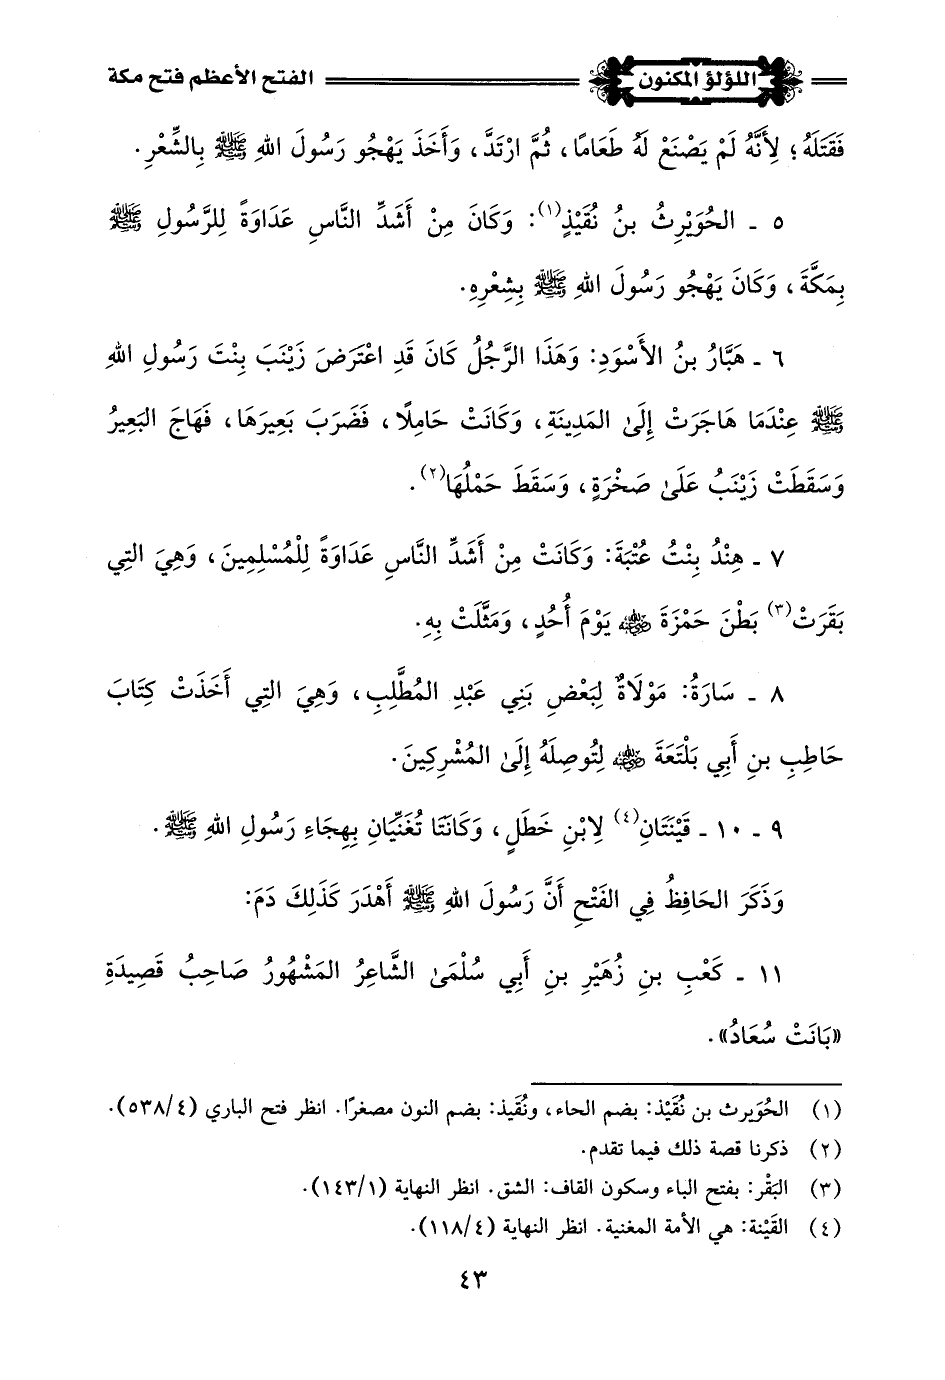 اللؤلؤ المكنون الفتح الأعظم فتح مكة
فَقَتَلَهُ؛ لِأَنَّهُ لَمْ يَصْنَعْ لَهُ طَعَامًا، ثُمَّ ارْتَدَّ، وَأَخَذَ يَهْجُو رَسُولَ اللهِ ﷺ بِالشِّعْرِ.
٥ - الحُوَيْرِثُ بنُ نُقَيْذٍ(١): وَكَانَ مِنْ أَشَدِّ النَّاسِ عَدَاوَةً لِلرَّسُولِ ﷺ
بِمَكَّةَ، وَكَانَ يَهْجُو رَسُولَ اللهِ ﷺ بِشِعْرِهِ.
٦ - هَبَّارُ بنُ الأَسْوَدِ: وَهَذَا الرَّجُلُ كَانَ قَدِ اعْتَرَضَ زَيْنَبَ بِنْتَ رَسُولِ اللهِ
ﷺ عِنْدَمَا هَاجَرَتْ إِلَىٰ المَدِينَةِ، وَكَانَتْ حَامِلًا، فَضَرَبَ بَعِيرَهَا، فَهَاجَ البَعِيرُ
وَسَقَطَتْ زَيْنَبُ عَلَىٰ صَخْرَةٍ، وَسَقَطَ حَمْلُهَا(٢).
٧ - هِنْدُ بِنْتُ عُتْبَةَ: وَكَانَتْ مِنْ أَشَدِّ النَّاسِ عَدَاوَةً لِلْمُسْلِمِينَ، وَهِيَ التِي
بَقَرَتْ(٣) بَطْنَ حَمْزَةَ رضي الله عنه يَوْمَ أُحُدٍ، وَمَثَّلَتْ بِهِ.
٨ - سَارَةُ: مَوْلَاةٌ لِبَعْضِ بَنِي عَبْدِ المُطَّلِبِ، وَهِيَ التِي أَخَذَتْ كِتَابَ
حَاطِبِ بنِ أَبِي بَلْتَعَةَ رضي الله عنه لِتُوصِلَهُ إِلَىٰ المُشْرِكِينَ.
٩ - ١٠ - قَيْنَتَانِ(٤) لِابْنِ خَطَلٍ، وَكَانَتَا تُغَنِّيَانِ بِهِجَاءِ رَسُولِ اللهِ ﷺ.
وَذَكَرَ الحَافِظُ فِي الفَتْحِ أَنَّ رَسُولَ اللهِ ﷺ أَهْدَرَ كَذَلِكَ دَمَ:
١١ - كَعْبِ بنِ زُهَيْرِ بنِ أَبِي سُلْمَىٰ الشَّاعِرُ المَشْهُورُ صَاحِبُ قَصِيدَةِ
«بَانَتْ سُعَادُ».
(١) الحُوَيرث بن نُقَيْذ: بضم الحاء، ونُقَيذ: بضم النون مصغرًا. انظر فتح الباري (٥٣٨/٤).
(٢) ذكرنا قصة ذلك فيما تقدم.
(٣) البَقْر: بفتح الباء وسكون القاف: الشق. انظر النهاية (١٤٣/١).
(٤) القَيْنة: هي الأمة المغنية. انظر النهاية (١١٨/٤).
٤٣